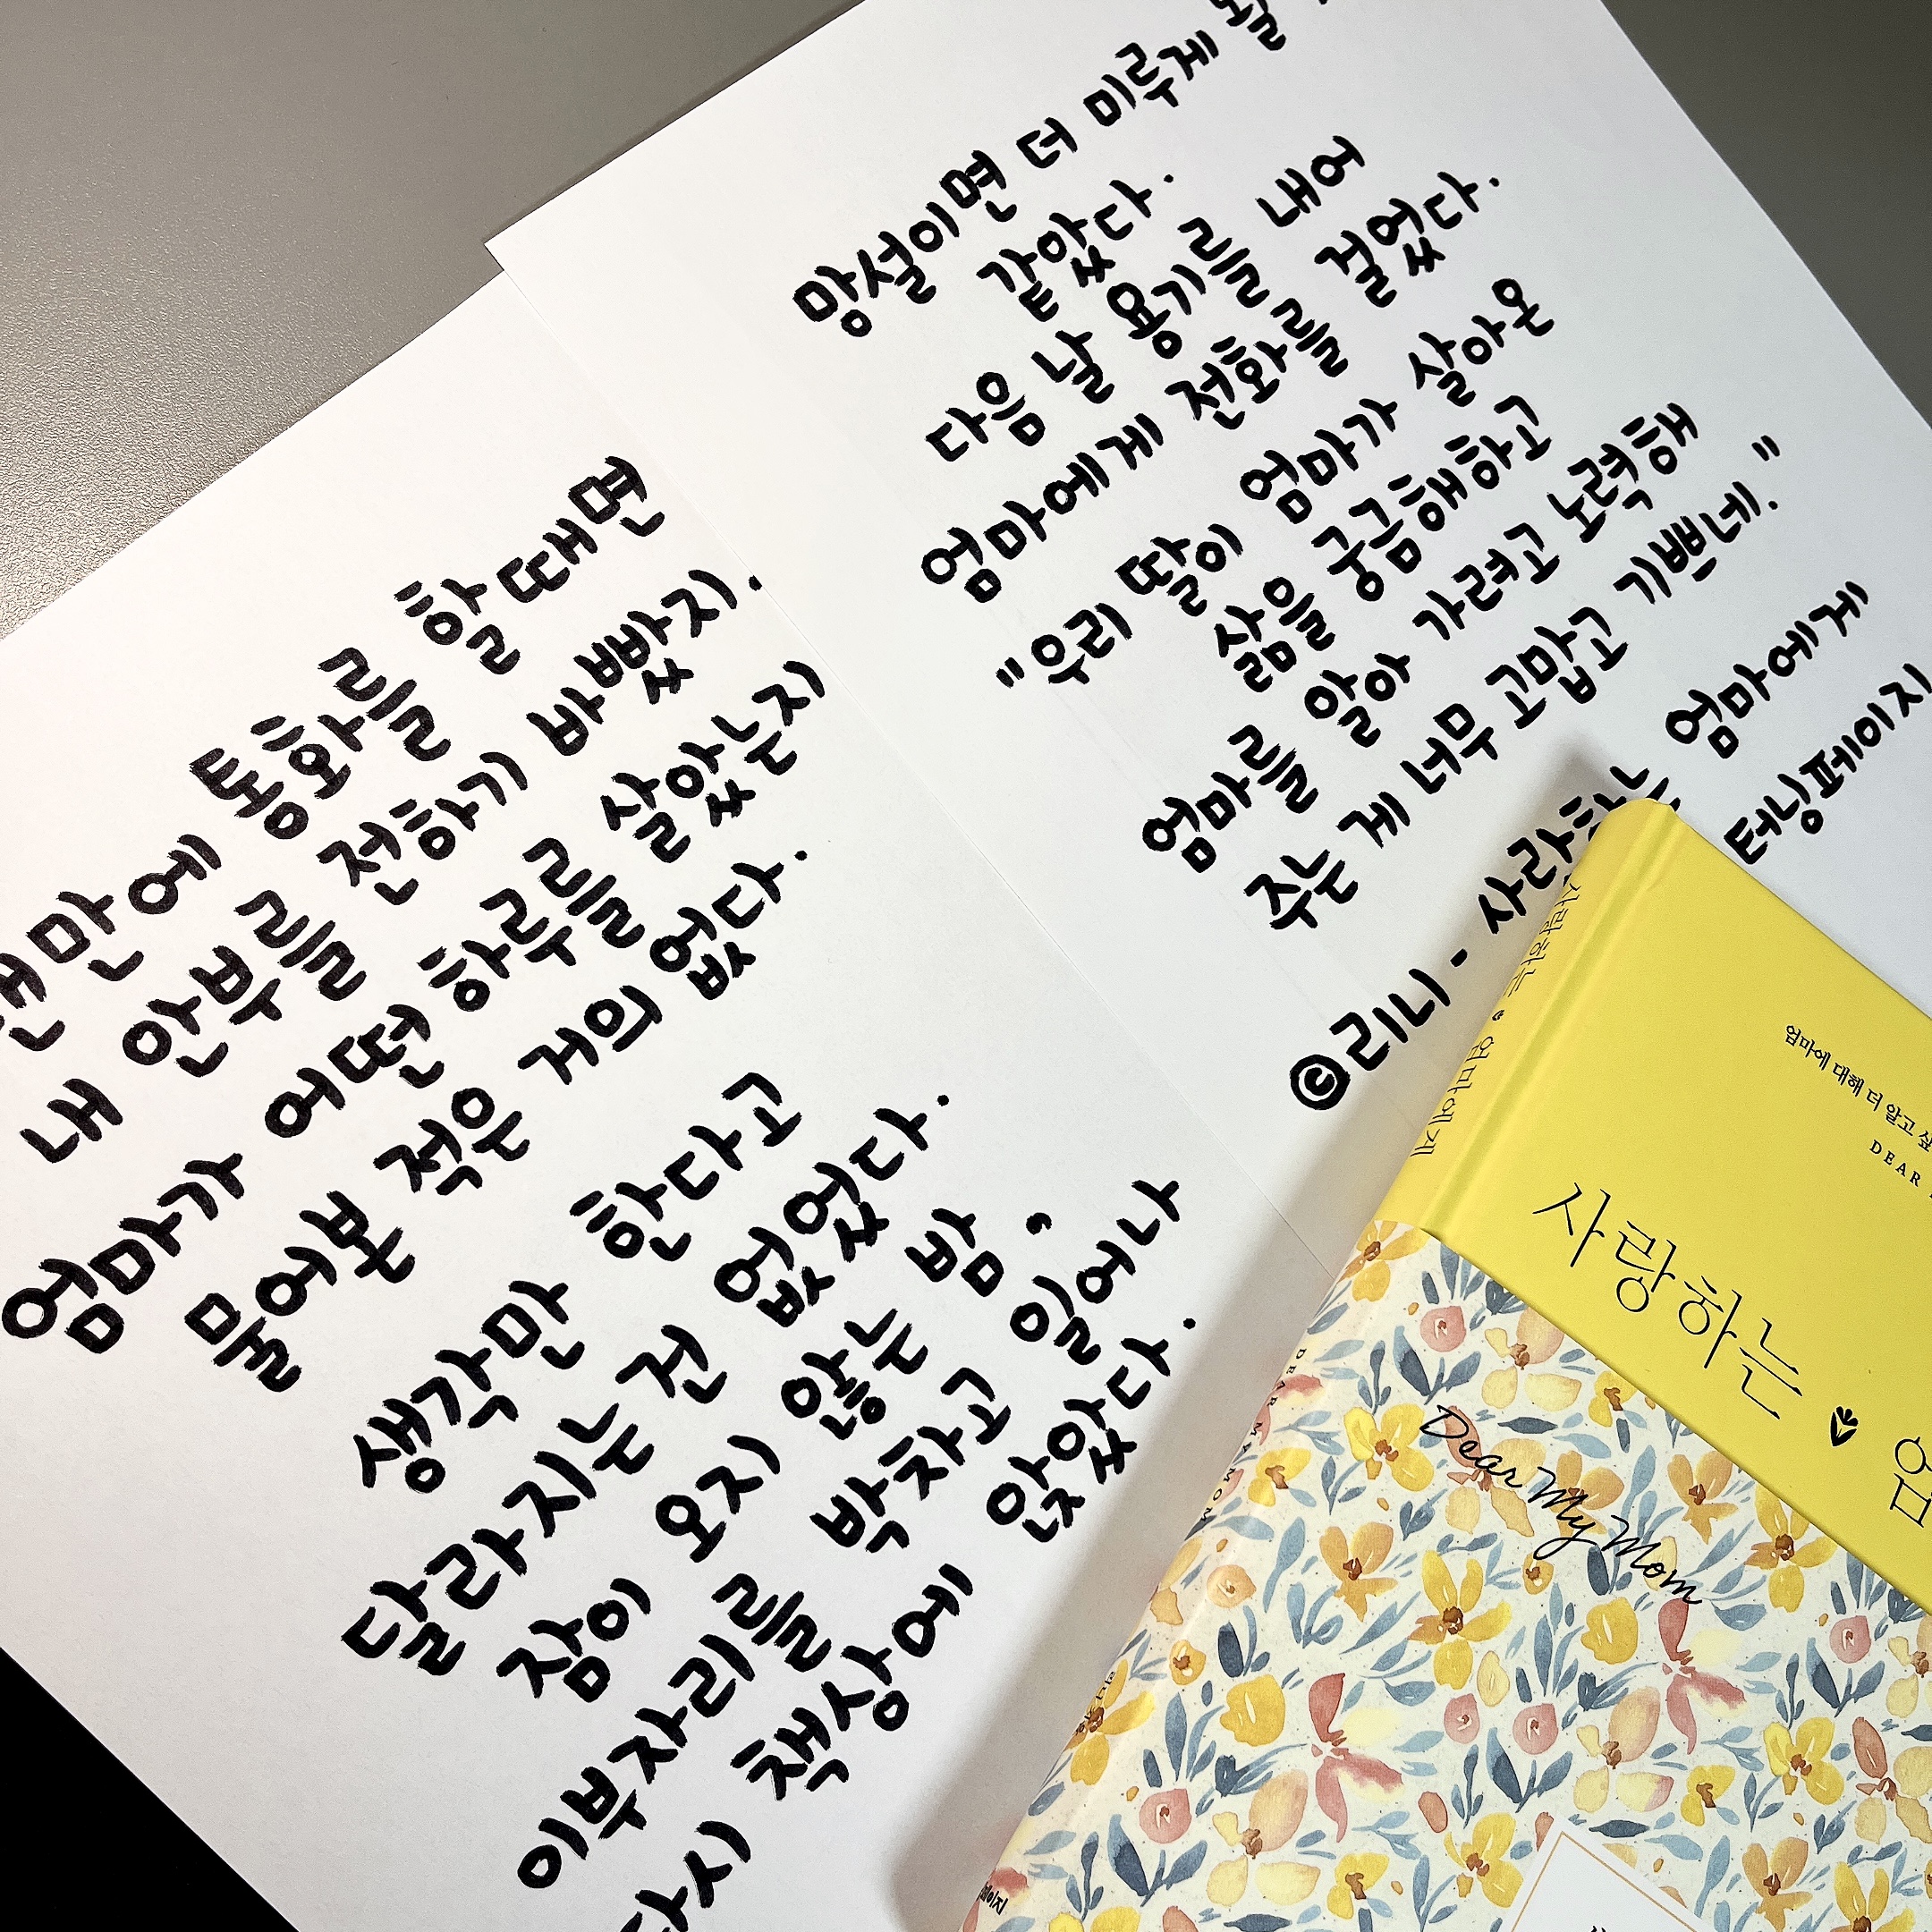 통화를 할 때면
내 안부를 전하기 바빴지.
엄마가 어떤 하루를 살았는지
물어본 적은 거의 없다.
생각만 한다고
달라지는 건 없었다.
잠이 오지 않는 밤,
이부자리를 박차고 일어나
다시 책상에 앉았다.
망설이면 더 미루게 될
같았다.
다음 날 용기를 내어
엄마에게 전화를 걸었다.
"우리 딸이 엄마가 살아온
삶을 궁금해하고
엄마를 알아 가려고 노력해
주는 게 너무 고맙고 기쁘네."
©리니 - 사랑하는 엄마에게
터닝페이지
사랑하는 엄마에게
DEAR MY MOM
엄마에 대해 더 알고
DEAR
사랑하는 엄
Dear My Mom
페이지